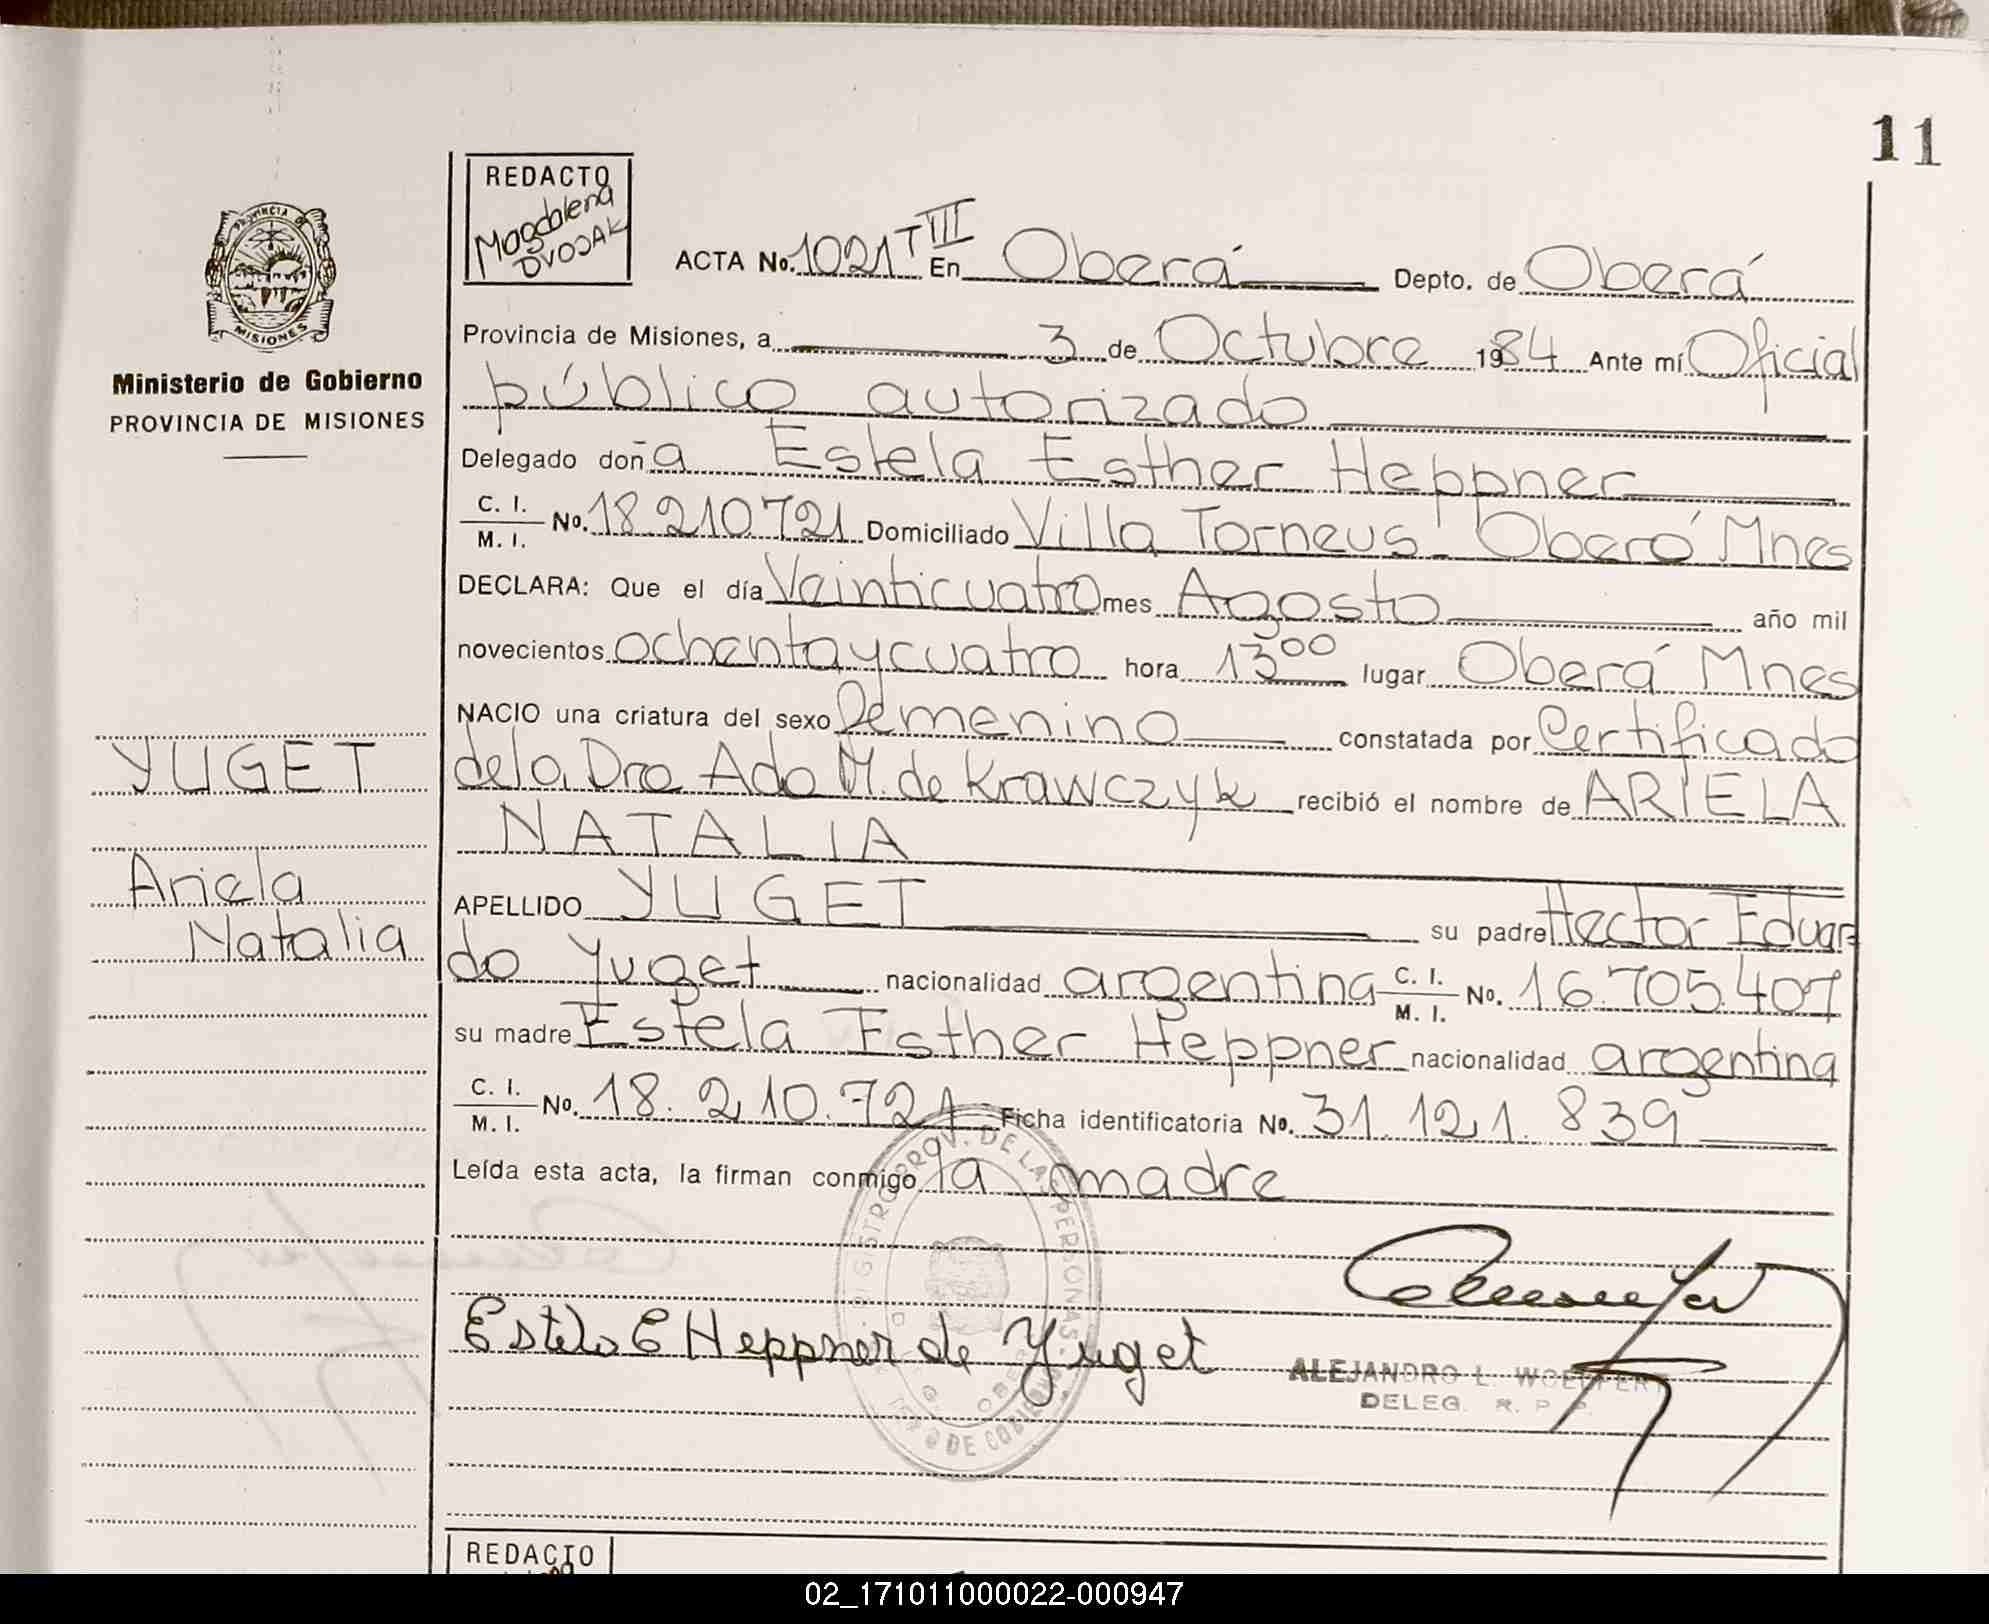 11
REDACTO
Magdalena
DVOJAK
PROVINCIA DE
MISIONES
Ministerio de Gobierno
PROVINCIA DE MISIONES
ACTA No. 1021 T III En Oberá Depto. de Oberá
Provincia de Misiones, a 3 de Octubre 1984 Ante mí Oficial
público autorizado
Delegado doña Estela Esther Heppner
C. I. / M. I. No. 18.210.721 Domiciliado Villa Torneus - Oberá Mnes
DECLARA: Que el día Veinticuatro mes Agosto año mil
novecientos ochentaycuatro hora 13 00 lugar Oberá Mnes
NACIO una criatura del sexo Femenino constatada por Certificado
YUGET
de la Dra Ada M. de Krawczyk recibió el nombre de ARIELA
NATALIA
Ariela
Natalia
APELLIDO YUGET su padre Hector Eduar
do Yuget nacionalidad argentina C. I. / M. I. No. 16.705.407
su madre Estela Esther Heppner nacionalidad argentina
C. I. / M. I. No. 18.210.721 Ficha identificatoria No. 31.121.839
Leída esta acta, la firman conmigo la madre
REGISTRO PROV. DE LAS PERSONAS
DE GOBIERNO
Estela E Heppner de Yuget
ALEJANDRO L. WOELFERT
DELEG. R. P. P.
REDACTO
02_171011000022-000947